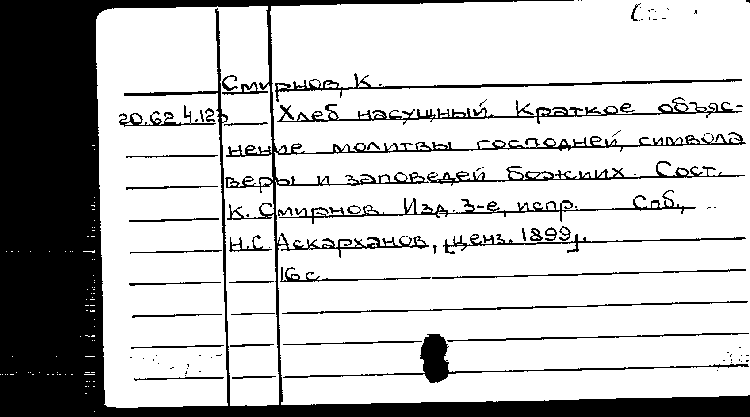 Смирнов, К.
20.62.4.123 Хлеб насущный. Краткое объяс-
нение молитвы господней, символа
веры и заповедей божиих. Сост.
К. Смирнов. Изд. 3-е, испр. Спб,
Н.С. Аскарханов, [ценз. 1899].
16 с.